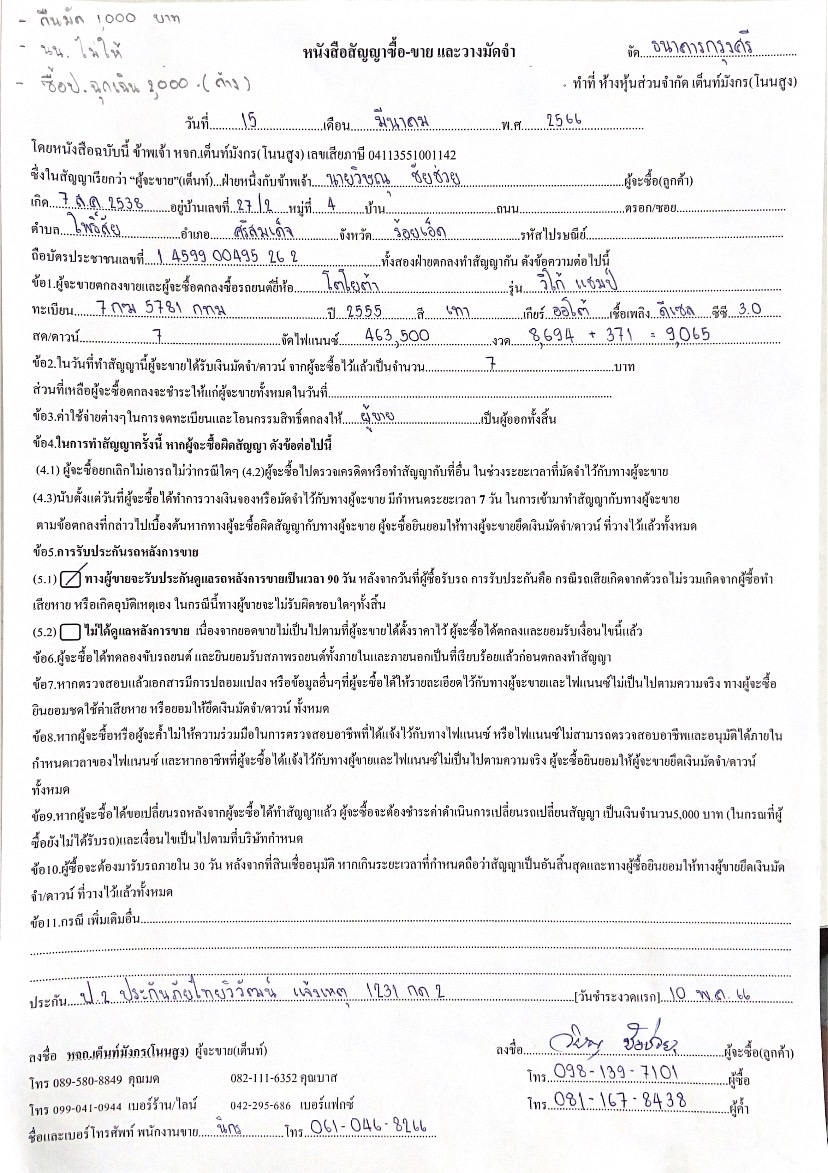 - คืนมัด 1000 บาท
- นน. ไม่ให้
- ซื้อป.ฉุกเฉิน 2,000.(ค้าง)
หนังสือสัญญาซื้อ-ขาย และวางมัดจำ
จัด ธนาคารกรุงศรี
ทำที่ ห้างหุ้นส่วนจำกัด เต็นท์มังกร(โนนสูง)
วันที่ 15 เดือน มีนาคม พ.ศ. 2566
โดยหนังสือฉบับนี้ ข้าพเจ้า หจก.เต็นท์มังกร(โนนสูง) เลขเสียภาษี 04113551001142
ซึ่งในสัญญาเรียกว่า "ผู้จะขาย"(เต็นท์)...ฝ่ายหนึ่งกับข้าพเจ้า นายวิษณุ ชัยช่วย ผู้จะซื้อ(ลูกค้า)
เกิด 7 ส.ค. 2538 อยู่บ้านเลขที่ 27/2 หมู่ที่ 4 บ้าน ถนน ตรอก/ซอย
ตำบล โพธิ์สัย อำเภอ ศรีสมเด็จ จังหวัด ร้อยเอ็ด รหัสไปรษณีย์
ถือบัตรประชาชนเลขที่ 1 4599 00495 26 2 ทั้งสองฝ่ายตกลงทำสัญญากัน ดังข้อความต่อไปนี้
ข้อ1.ผู้จะขายตกลงขายและผู้จะซื้อตกลงซื้อรถยนต์ยี่ห้อ โตโยต้า รุ่น วีโก้ แชมป์
ทะเบียน 7กฆ 5781 กทม ปี 2555 สี เทา เกียร์ ออโต้ เชื้อเพลิง ดีเซล ซีซี 3.0
สด/ดาวน์ 7 จัดไฟแนนซ์ 463,500 งวด 8,694 + 371 = 9,065
ข้อ2.ในวันที่ทำสัญญานี้ผู้จะขายได้รับเงินมัดจำ/ดาวน์ จากผู้จะซื้อไว้แล้วเป็นจำนวน 7 บาท
ส่วนที่เหลือผู้จะซื้อตกลงจะชำระให้แก่ผู้จะขายทั้งหมดในวันที่
ข้อ3.ค่าใช้จ่ายต่างๆในการจดทะเบียนและโอนกรรมสิทธิ์ตกลงให้ ผู้ขาย เป็นผู้ออกทั้งสิ้น
ข้อ4.ในการทำสัญญาครั้งนี้ หากผู้จะซื้อผิดสัญญา ดังข้อต่อไปนี้
(4.1) ผู้จะซื้อยกเลิกไม่เอารถไม่ว่ากรณีใดๆ (4.2)ผู้จะซื้อไปตรวจเครดิตหรือทำสัญญากับที่อื่น ในช่วงระยะเวลาที่มัดจำไว้กับทางผู้จะขาย
(4.3)นับตั้งแต่วันที่ผู้จะซื้อได้ทำการวางเงินจองหรือมัดจำไว้กับทางผู้จะขาย มีกำหนดระยะเวลา 7 วัน ในการเข้ามาทำสัญญากับทางผู้จะขาย
ตามข้อตกลงที่กล่าวไปเบื้องต้นหากทางผู้จะซื้อผิดสัญญากับทางผู้จะขาย ผู้จะซื้อยินยอมให้ทางผู้จะขายยึดเงินมัดจำ/ดาวน์ ที่วางไว้แล้วทั้งหมด
ข้อ5.การรับประกันรถหลังการขาย
(5.1) ทางผู้ขายจะรับประกันดูแลรถหลังการขายเป็นเวลา 90 วัน หลังจากวันที่ผู้ซื้อรับรถ การรับประกันคือ กรณีรถเสียเกิดจากตัวรถไม่รวมเกิดจากผู้ซื้อทำ
เสียหาย หรือเกิดอุบัติเหตุเอง ในกรณีนี้ทางผู้ขายจะไม่รับผิดชอบใดๆทั้งสิ้น
(5.2) ไม่ได้ดูแลหลังการขาย เนื่องจากยอดขายไม่เป็นไปตามที่ผู้จะขายได้ตั้งราคาไว้ ผู้จะซื้อได้ตกลงและยอมรับเงื่อนไขนี้แล้ว
ข้อ6.ผู้จะซื้อได้ทดลองขับรถยนต์ และยินยอมรับสภาพรถยนต์ทั้งภายในและภายนอกเป็นที่เรียบร้อยแล้วก่อนตกลงทำสัญญา
ข้อ7.หากตรวจสอบแล้วเอกสารมีการปลอมแปลง หรือข้อมูลอื่นๆที่ผู้จะซื้อได้ให้รายละเอียดไว้กับทางผู้จะขายและไฟแนนซ์ไม่เป็นไปตามความจริง ทางผู้จะซื้อ
ยินยอมชดใช้ค่าเสียหาย หรือยอมให้ยึดเงินมัดจำ/ดาวน์ ทั้งหมด
ข้อ8.หากผู้จะซื้อหรือผู้จะค้ำไม่ให้ความร่วมมือในการตรวจสอบอาชีพที่ได้แจ้งไว้กับทางไฟแนนซ์ หรือไฟแนนซ์ไม่สามารถตรวจสอบอาชีพและอนุมัติได้ภายใน
กำหนดเวลาของไฟแนนซ์ และหากอาชีพที่ผู้จะซื้อได้แจ้งไว้กับทางผู้ขายและไฟแนนซ์ไม่เป็นไปตามความจริง ผู้จะซื้อยินยอมให้ผู้จะขายยึดเงินมัดจำ/ดาวน์
ทั้งหมด
ข้อ9.หากผู้จะซื้อได้ขอเปลี่ยนรถหลังจากผู้จะซื้อได้ทำสัญญาแล้ว ผู้จะซื้อจะต้องชำระค่าดำเนินการเปลี่ยนรถเปลี่ยนสัญญา เป็นเงินจำนวน5,000 บาท (ในกรณที่ผู้
ซื้อยังไม่ได้รับรถ)และเงื่อนไขเป็นไปตามที่บริษัทกำหนด
ข้อ10.ผู้ซื้อจะต้องมารับรถภายใน 30 วัน หลังจากที่สินเชื่ออนุมัติ หากเกินระยะเวลาที่กำหนดถือว่าสัญญาเป็นอันสิ้นสุดและทางผู้ซื้อยินยอมให้ทางผู้ขายยึดเงินมัด
จำ/ดาวน์ ที่วางไว้แล้วทั้งหมด
ข้อ11.กรณี เพิ่มเติมอื่น
ประกัน ป.2 ประกันภัยไทยวิวัฒน์ แจ้งเหตุ 1231 กด 2 [วันชำระงวดแรก] 10 พ.ค. 66
ลงชื่อ หจก.เต็นท์มังกร(โนนสูง) ผู้จะขาย(เต็นท์)
ลงชื่อ ผู้จะซื้อ(ลูกค้า)
โทร 089-580-8849 คุณมด 082-111-6352 คุณบาส
โทร 098-139-7101 ผู้ซื้อ
โทร 099-041-0944 เบอร์ร้าน/ไลน์ 042-295-686 เบอร์แฟกซ์
โทร 081-167-8438 ผู้ค้ำ
ชื่อและเบอร์โทรศัพท์ พนักงานขาย นิกร โทร 061-046-8266